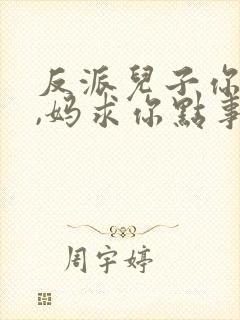 反派兒子你
,妈求你點事
周宇婷